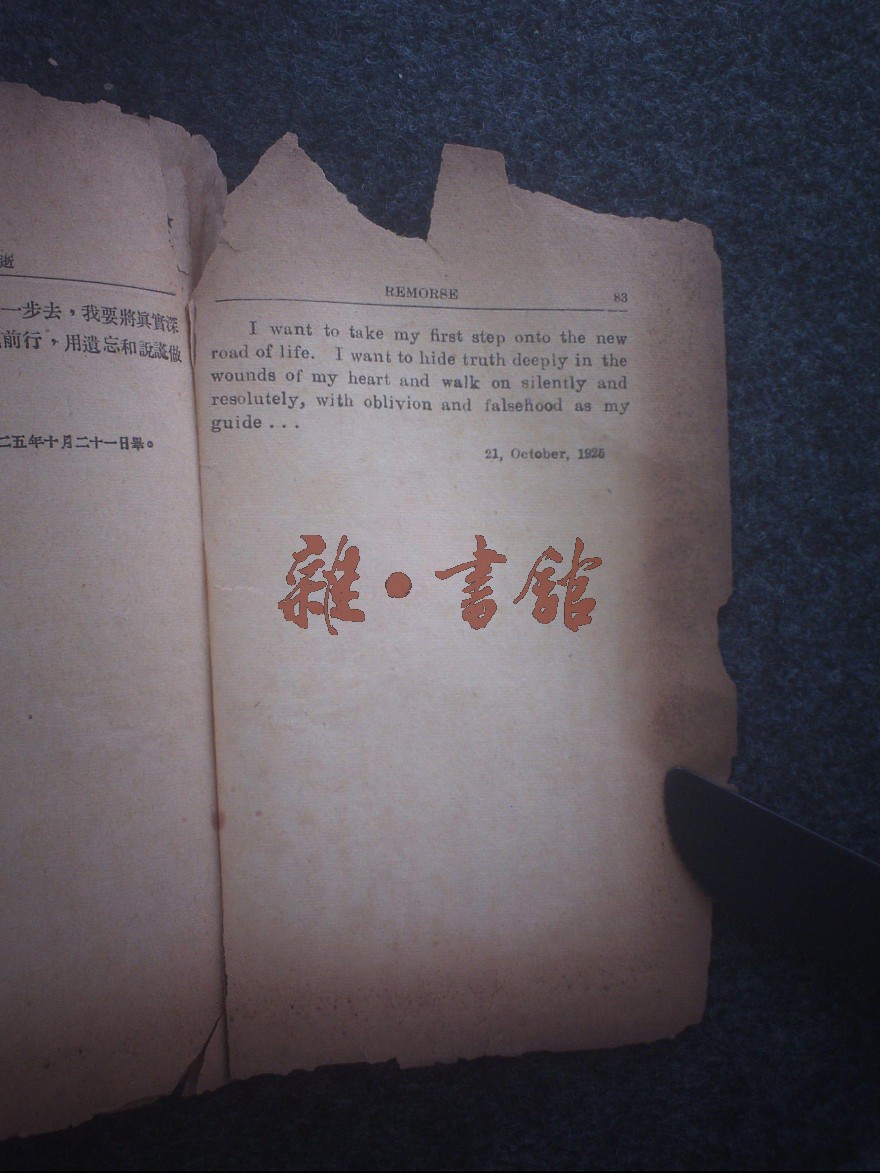 逝
一步去，我要將眞實深
前行，用遺忘和說謊做
二五年十月二十一日畢。
REMORSE 83
I want to take my first step onto the new
road of life. I want to hide truth deeply in the
wounds of my heart and walk on silently and
resolutely, with oblivion and falsehood as my
guide . . .
21, October, 1925
雜·書館